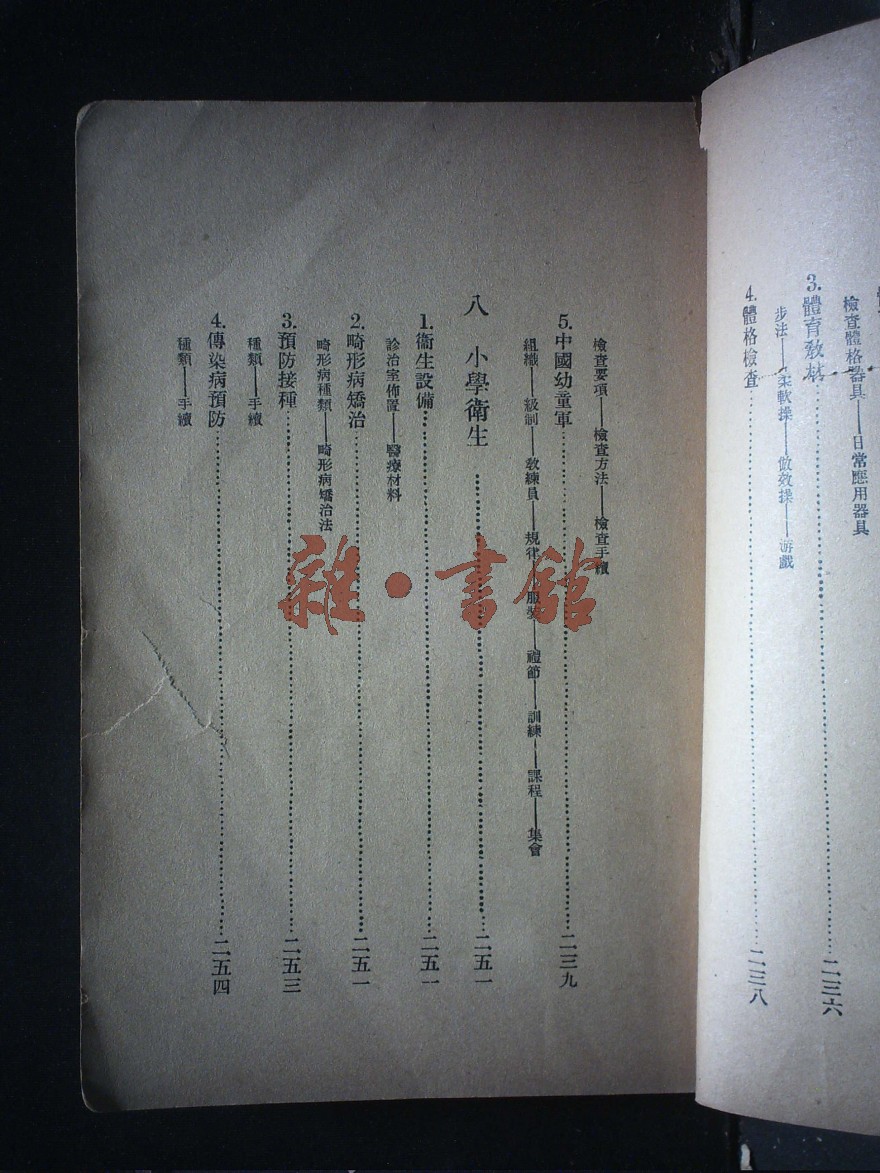 檢查體格器具——日常應用器具
3.體育教材……二三六
步法——柔軟操——倣效操——游戲
4.體格檢查……二三八
檢查要項——檢查方法——檢查手續
5.中國幼童軍……二三九
組織——級制——教練員——規律——服裝——禮節——訓練——課程——集會
八　小學衛生……二五一
1.衞生設備……二五一
診治室佈置——醫療材料
2.畸形病矯治……二五一
畸形病種類——畸形病矯治法
3.預防接種……二五三
種類——手續
4.傳染病預防……二五四
種類——手續
雜·書館